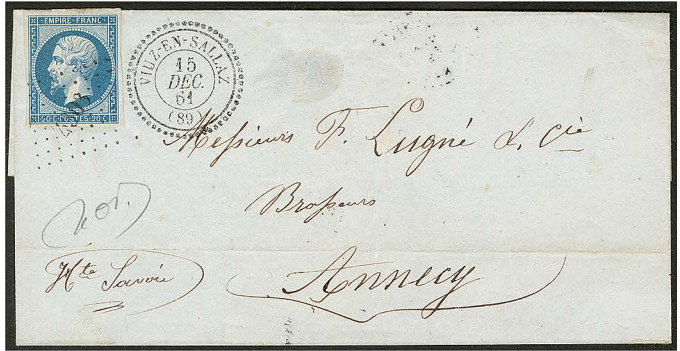 EMPIRE FRANC
20 C POSTES 20 C
VIUZ-EN-SALLAZ
15
DEC.
61
(89)
Messieurs F. Lugné & Cie
Brasseurs
Hte Savoie
Annecy